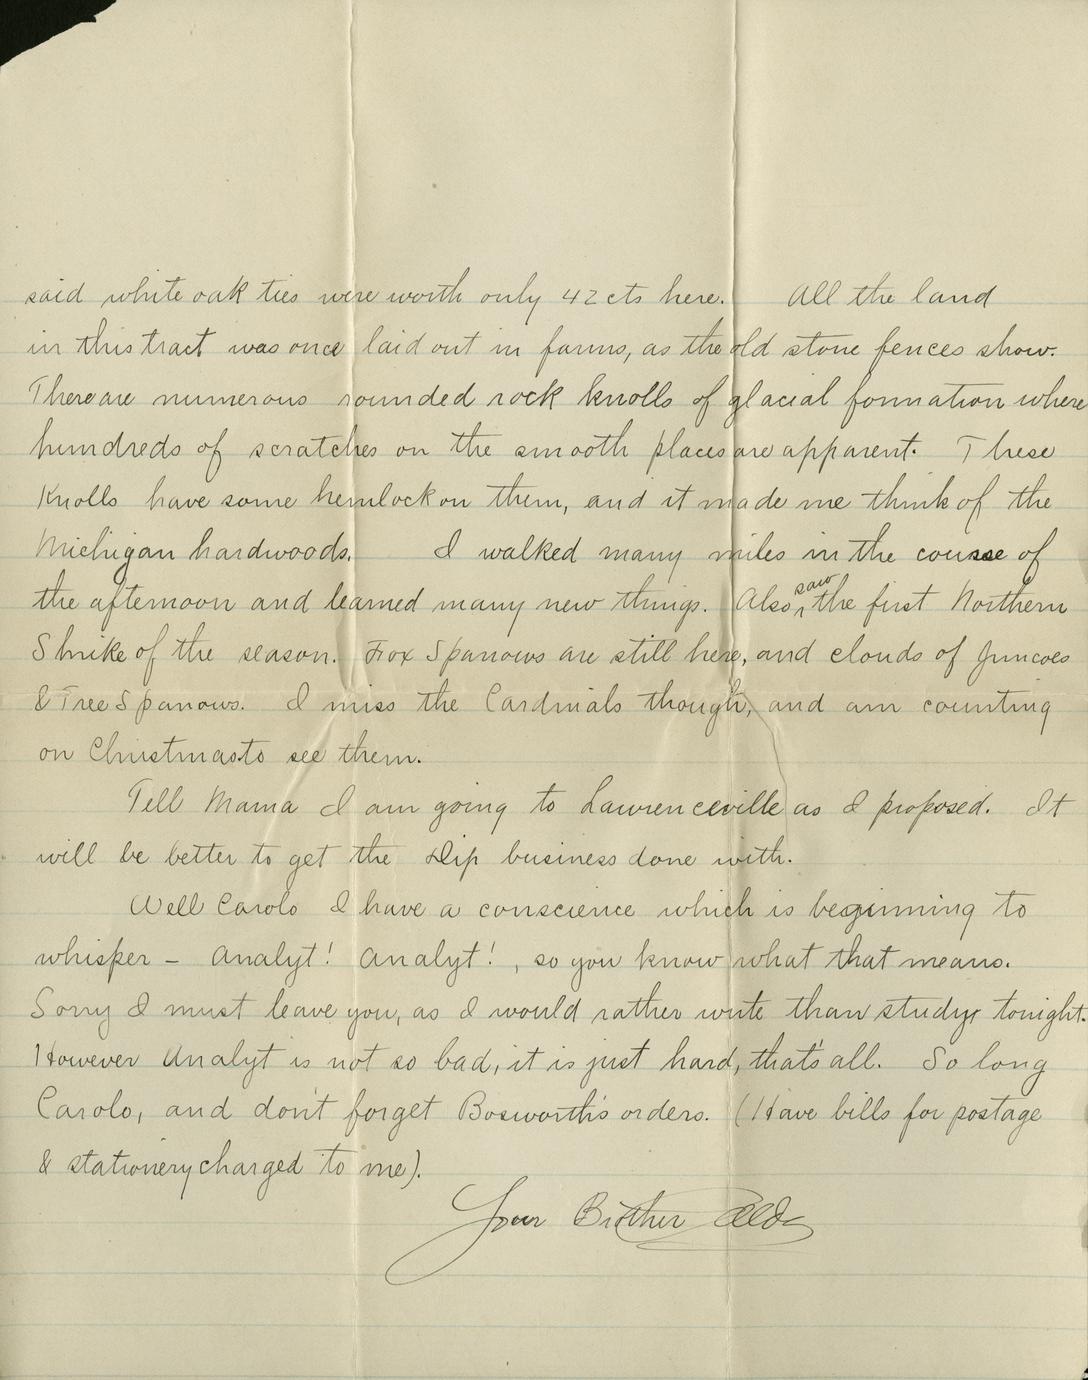 said white oak ties were worth only 42 cts here. All the land
in this tract was once laid out in farms, as the old stone fences show.
There are numerous rounded rock knolls of glacial formation where
hundreds of scratches on the smooth places are apparent. These
Knolls have some hemlock on them, and it made me think of the
Michigan hardwoods. I walked many miles in the course of
the afternoon and learned many new things. Also saw the first Northern
Shrike of the season. Fox Sparrows are still here, and clouds of Juncoes
& Tree Sparrows. I miss the Cardinals though, and am counting
on Christmas to see them.
Tell Mama I am going to Lawrenceville as I proposed. It
will be better to get the Dip business done with.
Well Carolo I have a conscience which is beginning to
whisper – Analyt! Analyt!, so you know what that means.
Sorry I must leave you, as I would rather write than study tonight.
However Analyt is not so bad, it is just hard, that's all. So long
Carolo, and don't forget Bosworth's orders. (Have bills for postage
& stationery charged to me).
Your Brother Aldo